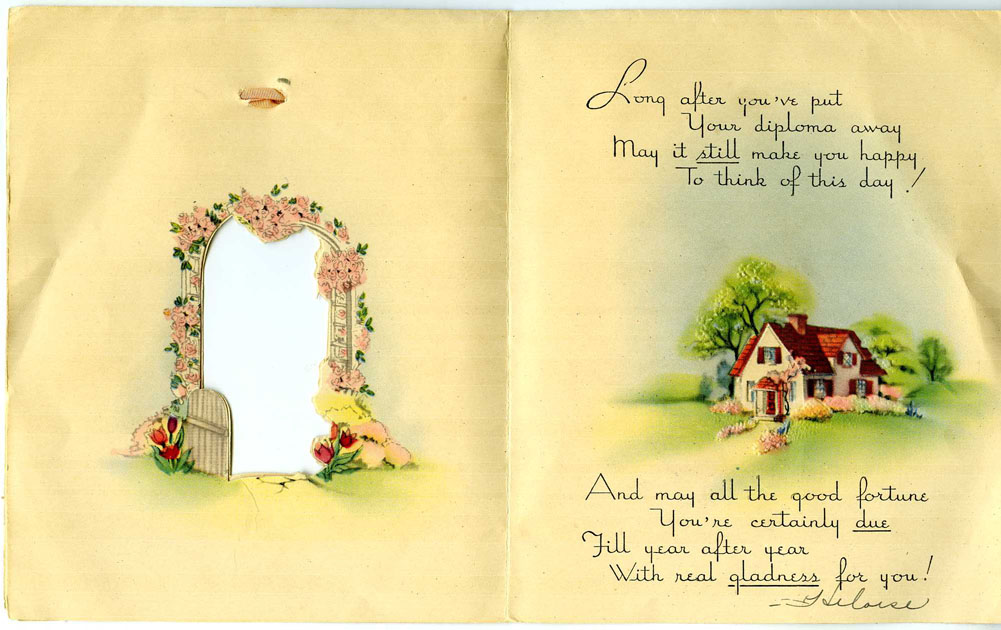 Long after you've put
Your diploma away
May it still make you happy
To think of this day!
And may all the good fortune
You're certainly due
Fill year after year
With real gladness for you!
Heloise